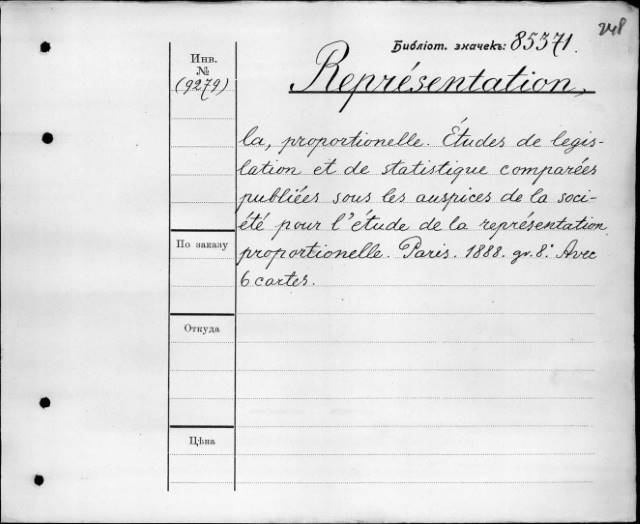 248
Библіот. значекъ: 85371.
Инв.
№
(9279)
Représentation,
la, proportionelle. Études de legis-
lation et de statistique comparées
publiées sous les auspices de la soci-
été pour l'étude de la représentation
proportionelle. Paris. 1888. gr. 8.° Avec
6 cartes.
По заказу
Откуда
Цѣна